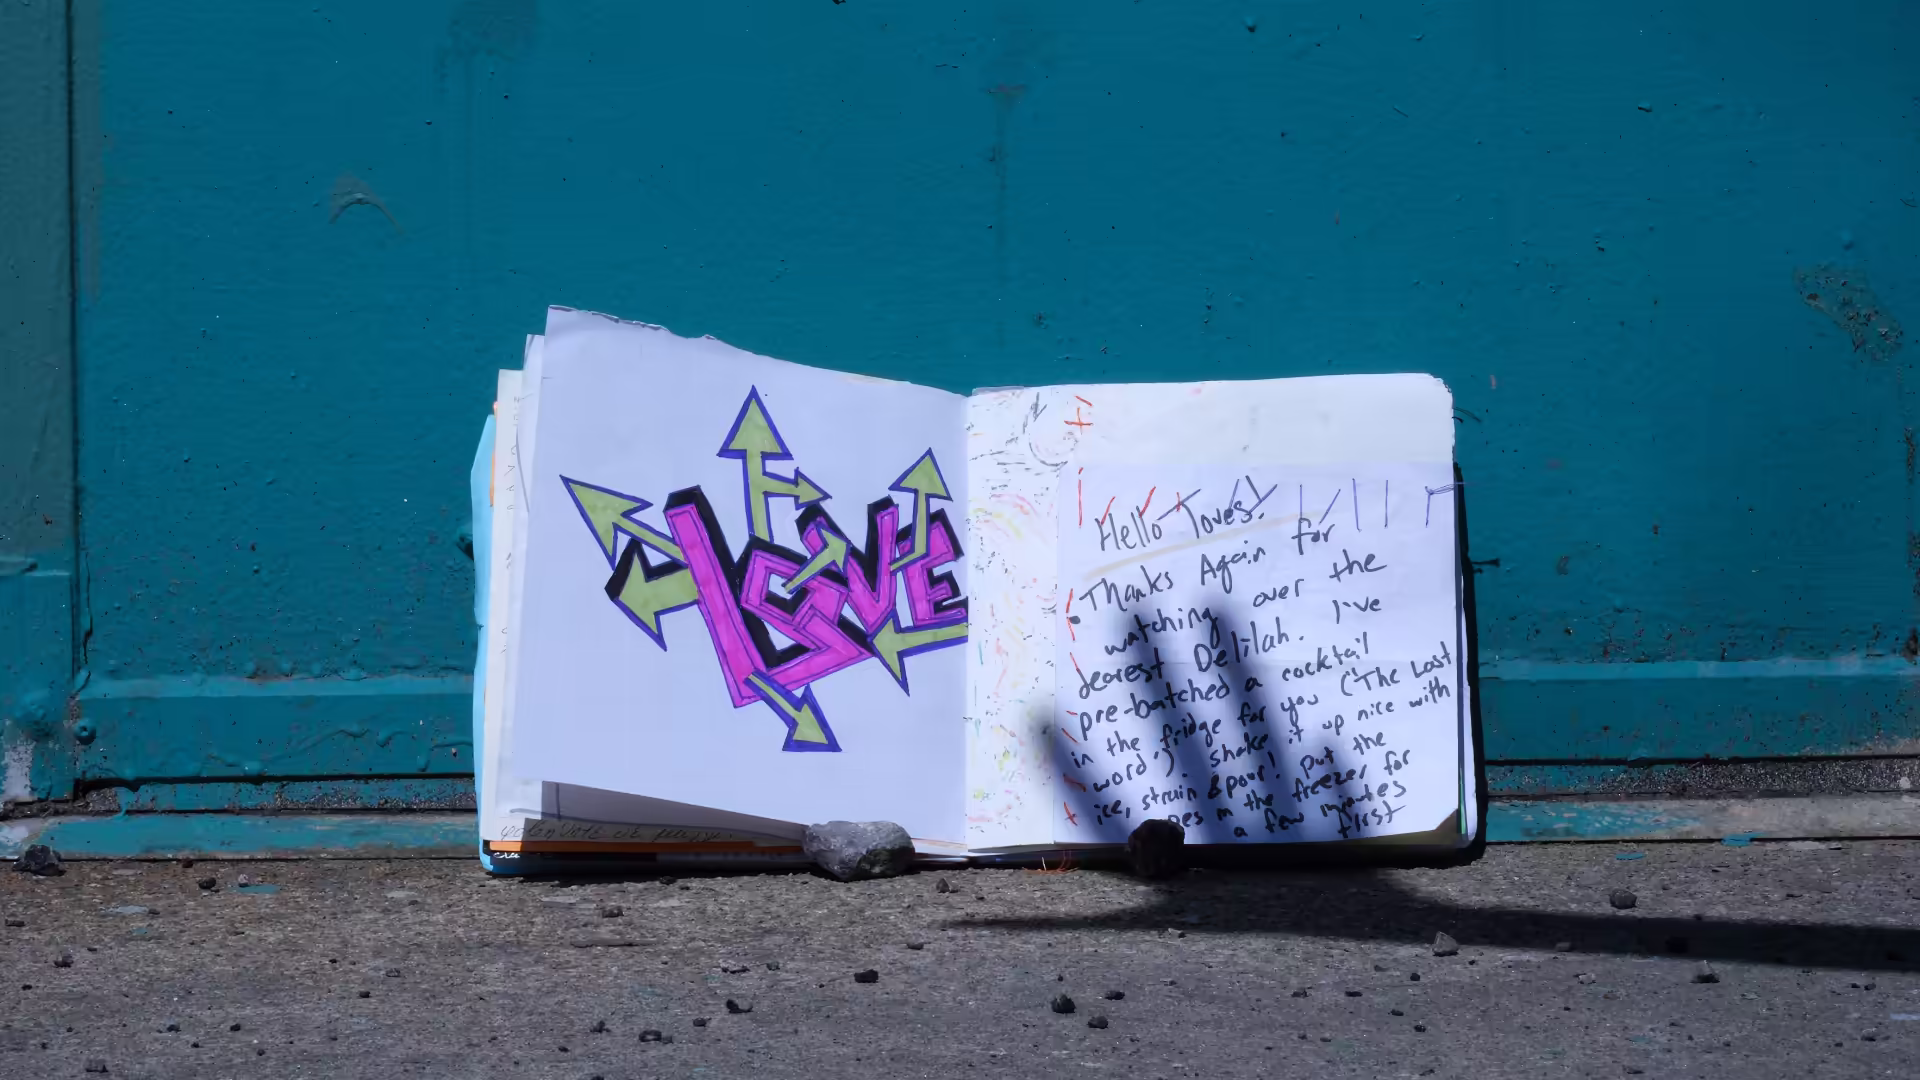 LOVE
Hello loves!
Thanks Again for
watching over the
dearest Delilah. I've
pre-batched a cocktail
in the fridge for you ("The Last
word"). Shake it up nice with
ice, strain & pour! Put the
in the freezer for
a few minutes
first